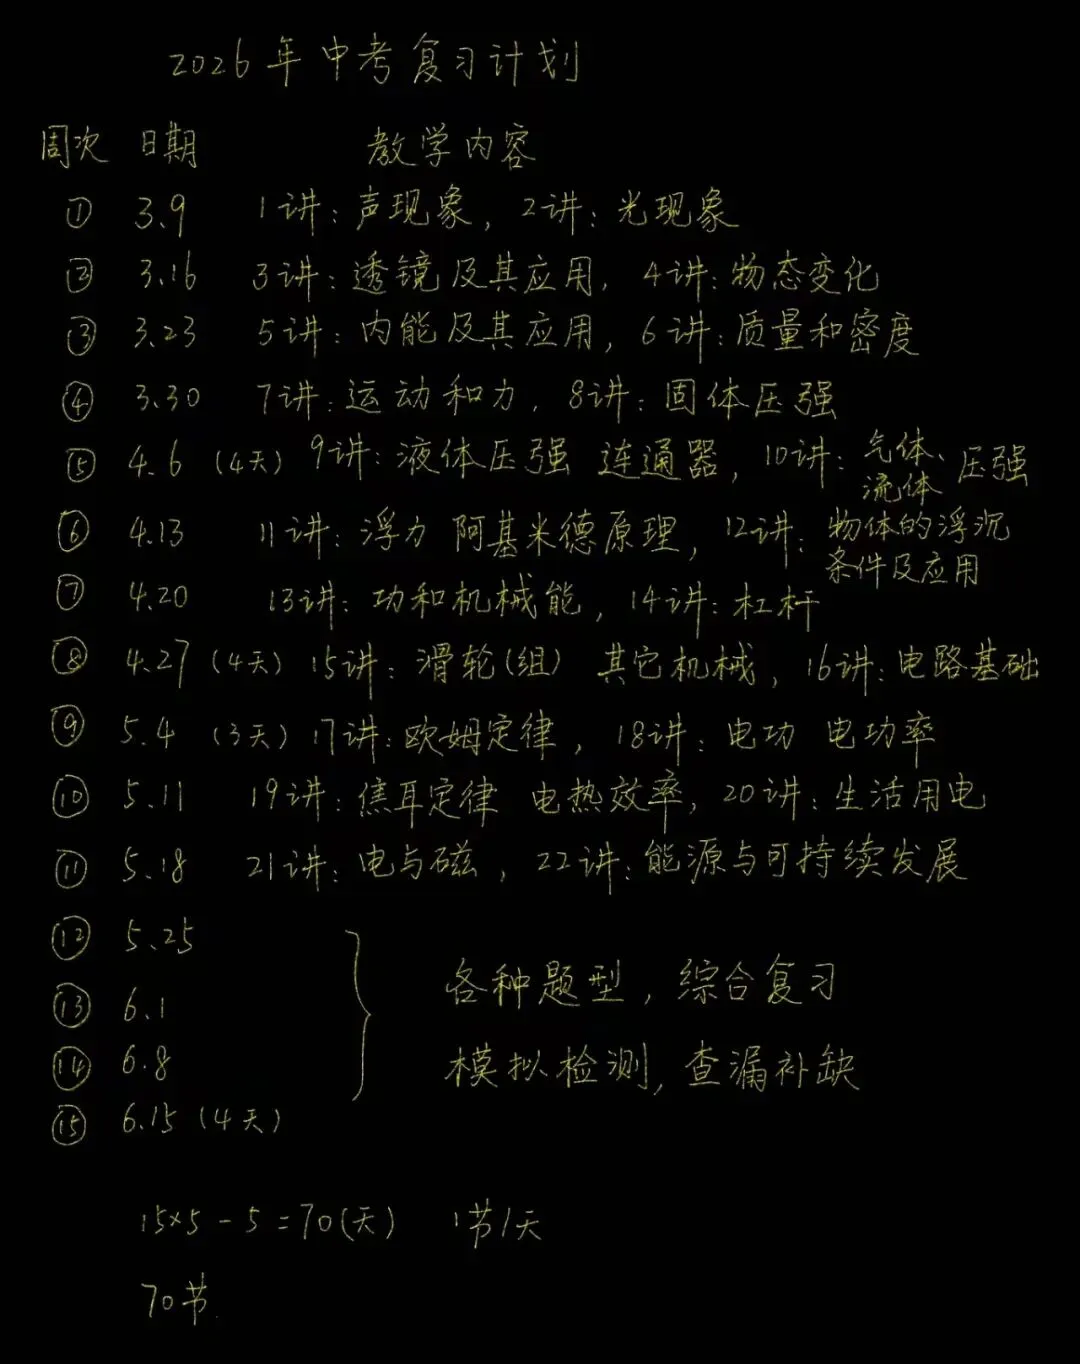 2026年中考复习计划
周次 日期 教学内容
① 3.9 1讲：声现象，2讲：光现象
② 3.16 3讲：透镜及其应用，4讲：物态变化
③ 3.23 5讲：内能及其应用，6讲：质量和密度
④ 3.30 7讲：运动和力，8讲：固体压强
⑤ 4.6（4天）9讲：液体压强 连通器，10讲：气体、流体压强
⑥ 4.13 11讲：浮力 阿基米德原理，12讲：物体的浮沉条件及应用
⑦ 4.20 13讲：功和机械能，14讲：杠杆
⑧ 4.27（4天）15讲：滑轮（组） 其它机械，16讲：电路基础
⑨ 5.4（3天）17讲：欧姆定律，18讲：电功 电功率
⑩ 5.11 19讲：焦耳定律 电热效率，20讲：生活用电
⑪ 5.18 21讲：电与磁，22讲：能源与可持续发展
⑫ 5.25
⑬ 6.1
⑭ 6.8
⑮ 6.15（4天）
各种题型，综合复习
模拟检测，查漏补缺
15×5－5＝70（天） 1节/天
70节.